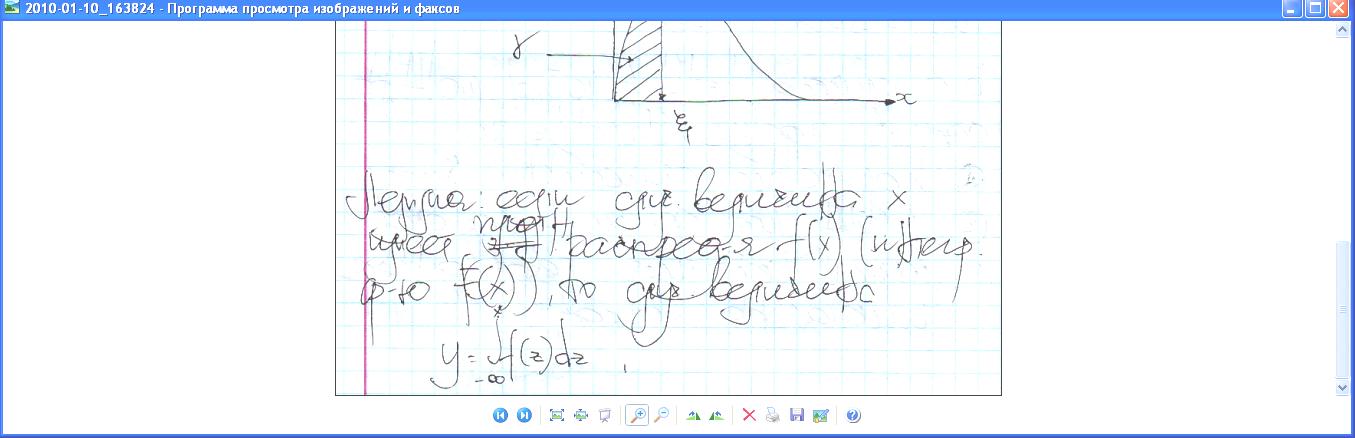 2010-01-10_163824 - Программа просмотра изображений и факсов
γ
x
ξ₁
Лемма: если случ. величина x
имеет плотн распредел-я f(x) (интегр.
ф-ю F(x)), то случ величина
y = ∫ₓ₋∞ f(z)dz ,